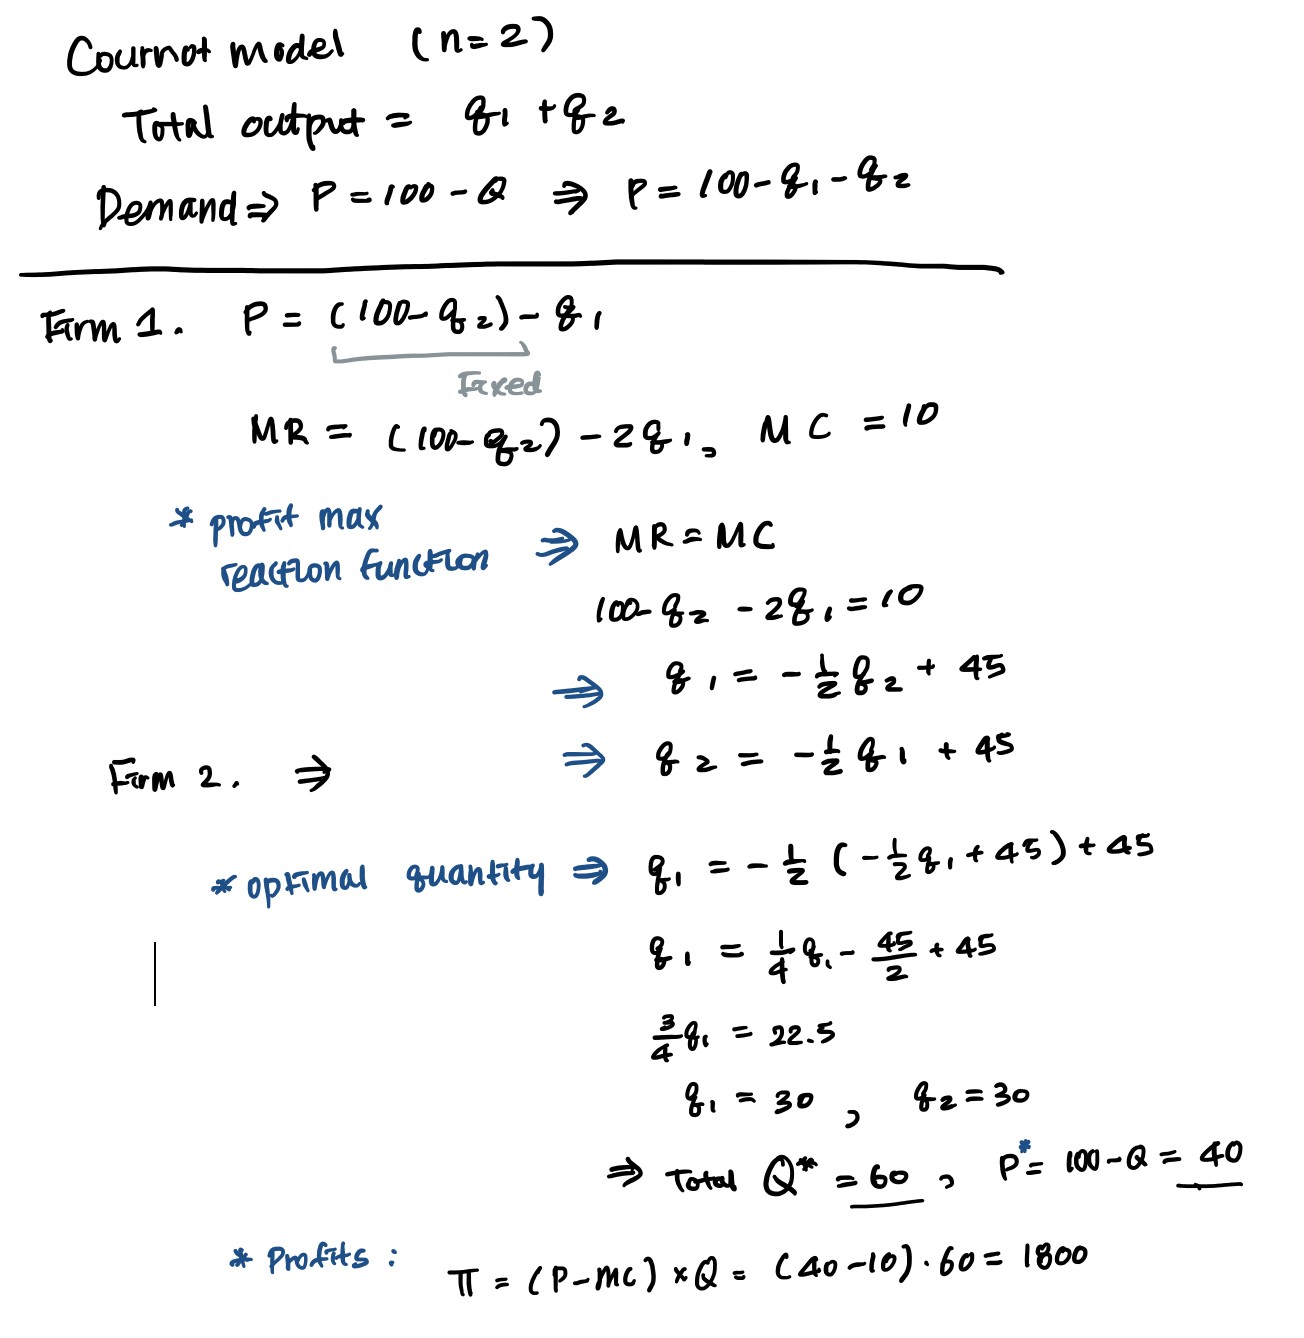 Cournot model (n=2)
Total output = q₁ + q₂
Demand ⇒ P = 100 - Q ⇒ P = 100 - q₁ - q₂
Firm 1. P = (100 - q₂) - q₁
Fixed
MR = (100 - q₂) - 2q₁, MC = 10
* profit max
reaction function ⇒ MR = MC
100 - q₂ - 2q₁ = 10
⇒ q₁ = -½ q₂ + 45
Firm 2. ⇒ ⇒ q₂ = -½ q₁ + 45
* optimal quantity ⇒ q₁ = -½ (-½ q₁ + 45) + 45
q₁ = ¼ q₁ - 45/2 + 45
¾ q₁ = 22.5
q₁ = 30, q₂ = 30
⇒ Total Q* = 60, P* = 100 - Q = 40
* Profits: π = (P - MC) × Q = (40 - 10) · 60 = 1800